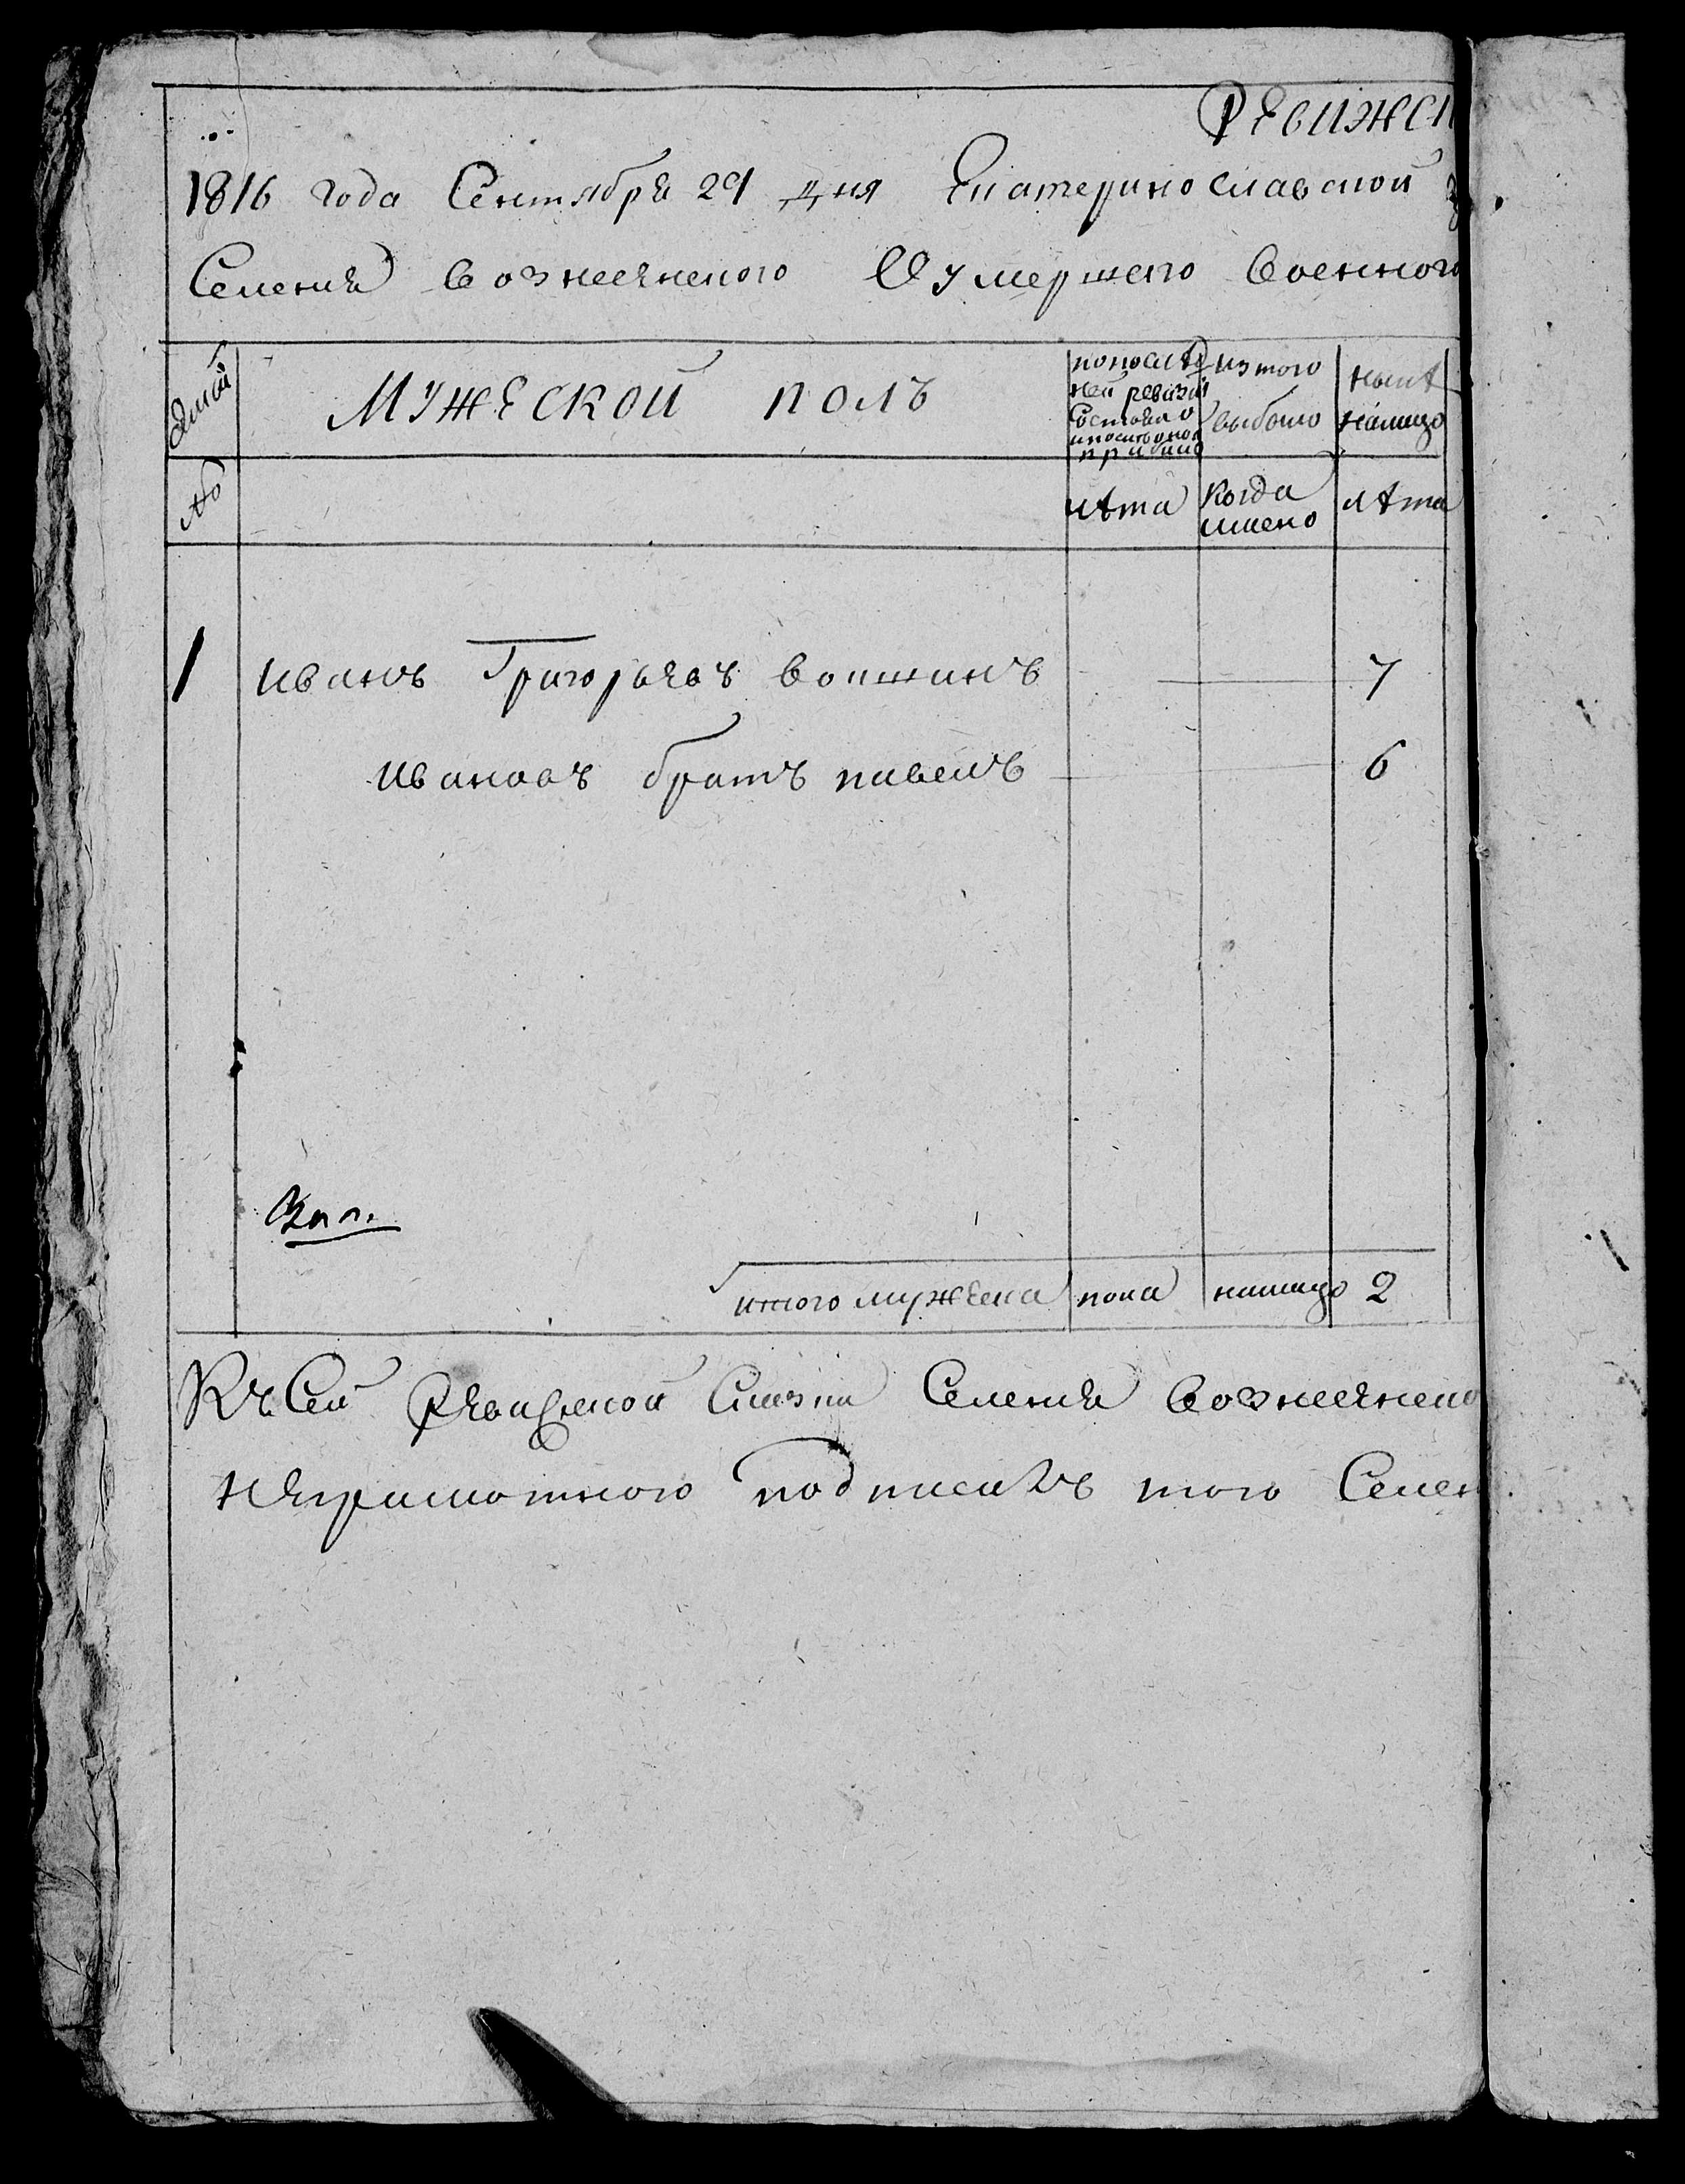 Ревижск
1816 года Сентября 29 дня Екатеринославской
Селения вознесенского О умершего военного
Мужеской полъ
попослѣд
ней ревизіи
состояло
и после оной
прибыло
изтого
выбыло
нынѣ
налицо
№
лѣта
Когда
имено
лѣта
1 иванъ Григорьевъ вошинъ 7
ивановъ братъ павелъ 6
итого мужеска пола налицо 2
Къ Сей Ревижской Сказки Селения вознесенско
неграмотного подписалъ того Селен